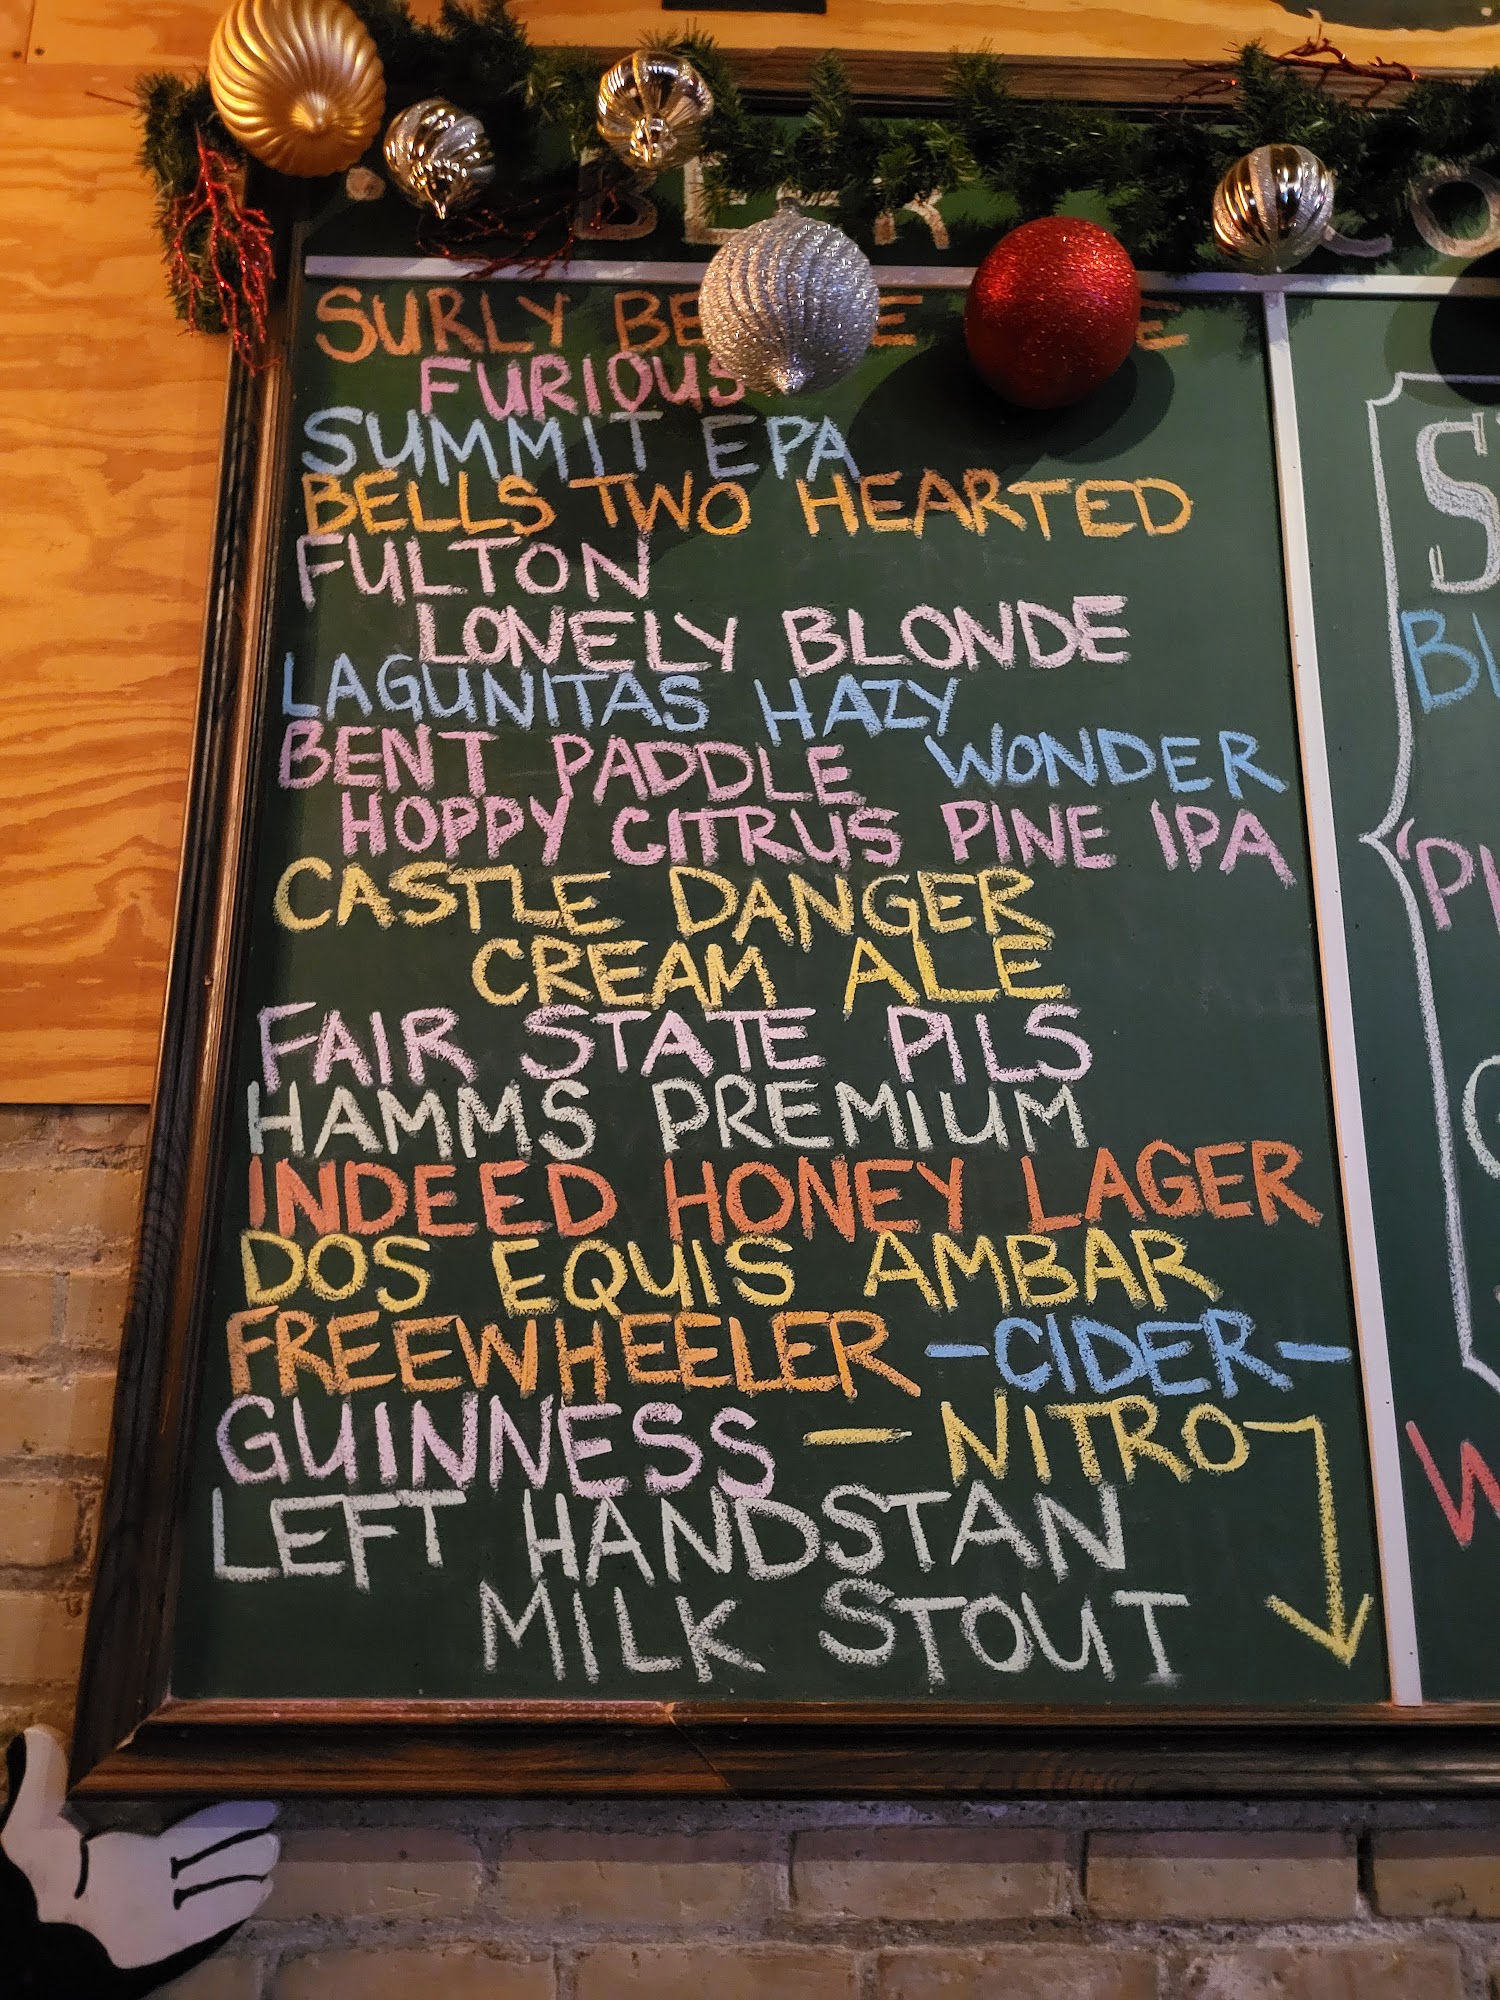 BEER
SURLY
FURIOUS
SUMMIT EPA
BELLS TWO HEARTED
FULTON
LONELY BLONDE
LAGUNITAS HAZY
WONDER
BENT PADDLE
HOPPY CITRUS PINE IPA
CASTLE DANGER
CREAM ALE
FAIR STATE PILS
HAMMS PREMIUM
INDEED HONEY LAGER
DOS EQUIS AMBAR
FREEWHEELER -CIDER-
GUINNESS - NITRO
LEFT HANDSTAN
MILK STOUT